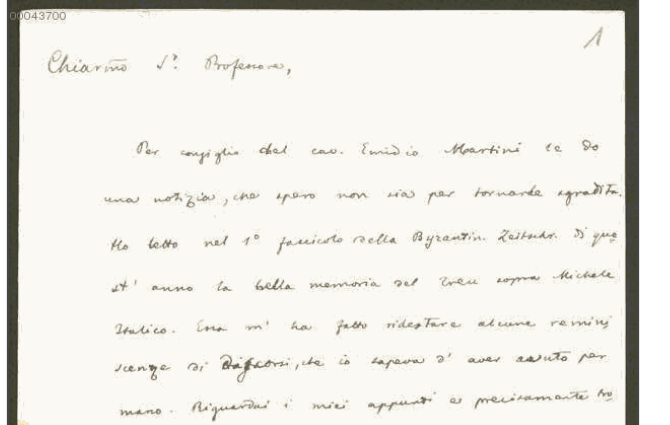 00043700
1
Chiarmo Sr. Professore,
Per consiglio del cav. Emidio Martini le do
una notizia, che spero non sia per tornarle sgradita.
Ho letto nel 1° fascicolo della Byzantin. Zeitschr. di que
st' anno la bella memoria del Treu sopra Michele
Italico. Essa m' ha fatto ridestare alcune remini
scenze di discorsi, che io sapeva d' aver avuto per
mano. Riguardai i miei appunti e precisamente tro